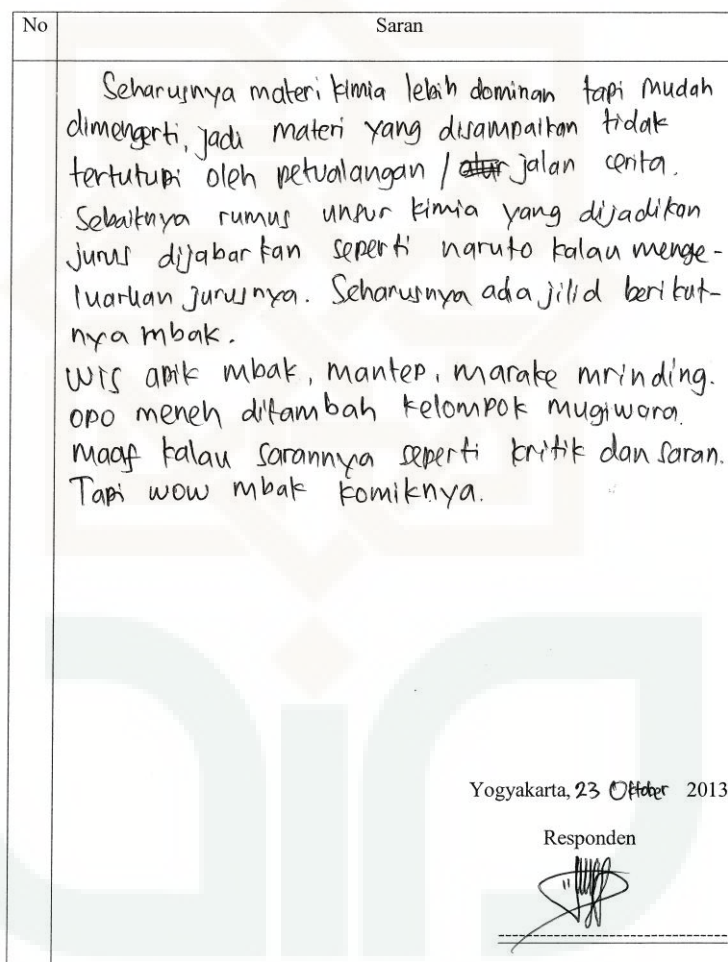 No Saran
Seharusnya materi kimia lebih dominan tapi mudah
dimengerti, jadi materi yang disampaikan tidak
tertutupi oleh petualangan / alur jalan cerita.
Sebaiknya rumus unsur kimia yang dijadikan
jurus dijabarkan seperti naruto kalau menge-
luarkan jurusnya. Seharusnya ada jilid berikut-
nya mbak.
Wis apik mbak, mantep, marake mrinding.
opo meneh ditambah kelompok mugiwara.
Maaf kalau sarannya seperti kritik dan saran.
Tapi wow mbak komiknya.
Yogyakarta, 23 Oktober 2013
Responden